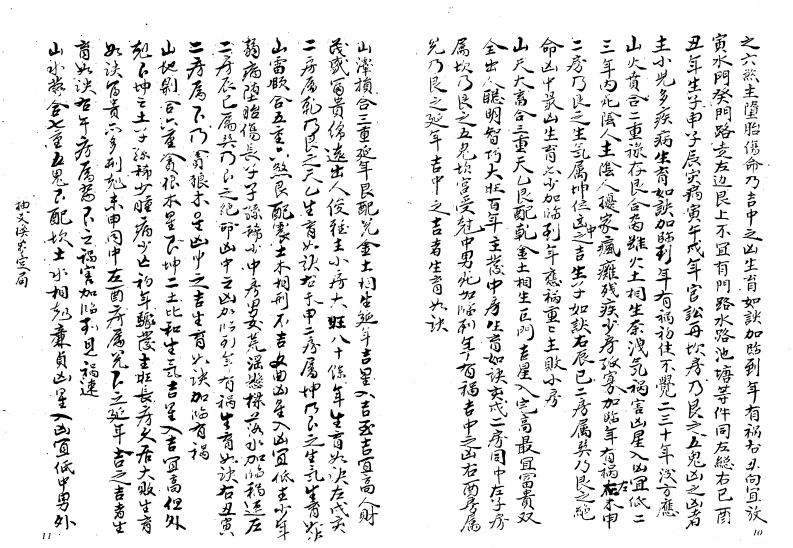 之六煞主墮胎傷命乃吉中之凶生育如訣加臨到年有禍右丑向宜放
寅水門癸門路走左边艮上不宜有門路水路池塘等件同左总右已酉
丑年生子申子辰寅病寅午戌年官訟再坎房乃艮之五鬼凶之凶者
主小児多疾病生育如訣加臨到年有禍初住不覺二三十年後方應
山火賁合二重祿存艮合為離火土相生奈洩気禍害凶星入凶宜低二
三年内死陰人主陰人擾家瘋癱残疾少房孤寡加臨年有禍右未申
二房乃艮之生気属坤位凶之吉生子如訣右辰巳二房属巽乃艮之絕
命凶中最凶生育少加臨到年應禍重重主敗小房
山天大畜合三重天乙艮配乾金土相生巨門吉星入宅高最宜富貴双
全出人聰明智巧大旺百年主發中房生育如訣戌亥二房同中左子房
属坎乃艮之五鬼坎宮受尅中男死加臨到年有禍吉中之凶右酉房属
兌乃艮之延年吉中之吉者生育如訣
山澤損合三重延年艮配兌金土相生延年吉星入吉至吉宜高人財
茂盛富貴綿遠出人俊雅主小房大旺八十餘年生育如訣左戌亥
二房属乾乃艮之天乙生育如訣右未申二房属坤乃艮之生気生育如訣
山雷頤合五重六煞艮配震土木相刑不吉文曲凶星入凶宜低主少年
弱病墮胎傷長子子孫稀少中房男女荒淫懸樑落水加臨禍速左
二房辰巳属巽乃艮之絕命凶中之凶加臨到年有禍生育如訣右丑寅
二房属艮乃貪狼木星凶中之吉生育如訣加臨有禍
山地剝合六重貪狼木星艮坤二土比和生気吉星入吉宜高但外
尅下坤之土子孫稀少腫病少亡初年驟發主旺長房久居大敗生育
如訣富貴亦多刑尅未申同中左酉房属兌艮之延年吉之吉者生
育如訣右午房属離艮之禍害加臨到見禍速
山水蒙合七重五鬼艮配坎土水相尅廉貞凶星入凶宜低中男外
11
10